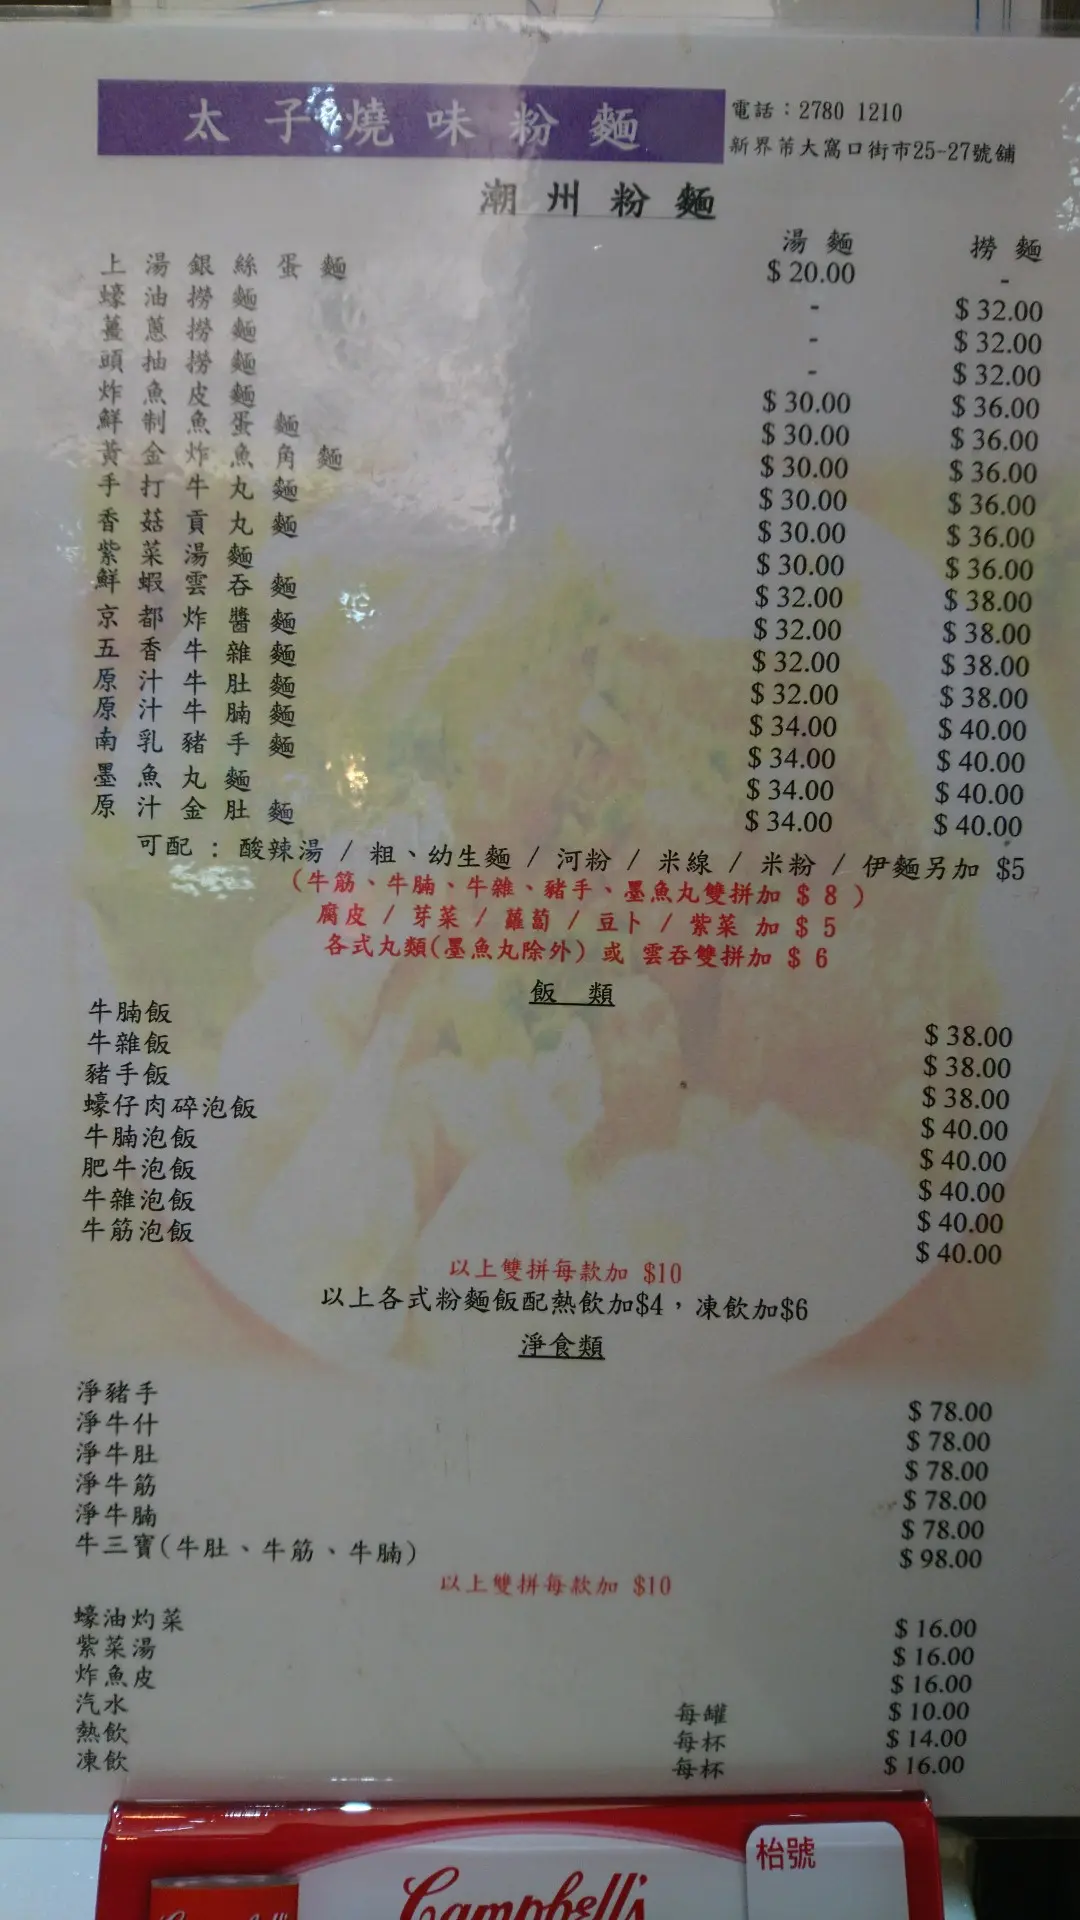 太子燒味粉麵
電話：2780 1210
新界荃大窩口街市25-27號舖
潮州粉麵
湯麵 撈麵
上湯銀絲蛋麵 $20.00 -
蠔油撈麵 - $32.00
薑蔥撈麵 - $32.00
頭抽撈麵 - $32.00
炸魚皮麵 $30.00 $36.00
鮮制魚蛋麵 $30.00 $36.00
黃金炸魚角麵 $30.00 $36.00
手打牛丸麵 $30.00 $36.00
香菇貢丸麵 $30.00 $36.00
紫菜湯麵 $30.00 $36.00
鮮蝦雲吞麵 $32.00 $38.00
京都炸醬麵 $32.00 $38.00
五香牛雜麵 $32.00 $38.00
原汁牛肚麵 $32.00 $38.00
原汁牛腩麵 $34.00 $40.00
南乳豬手麵 $34.00 $40.00
墨魚丸麵 $34.00 $40.00
原汁金肚麵 $34.00 $40.00
可配：酸辣湯 / 粗、幼生麵 / 河粉 / 米線 / 米粉 / 伊麵另加 $5
(牛筋、牛腩、牛雜、豬手、墨魚丸雙拼加 $ 8 )
腐皮 / 芽菜 / 蘿蔔 / 豆卜 / 紫菜 加 $ 5
各式丸類(墨魚丸除外) 或 雲吞雙拼加 $ 6
飯 類
牛腩飯 $38.00
牛雜飯 $38.00
豬手飯 $38.00
蠔仔肉碎泡飯 $40.00
牛腩泡飯 $40.00
肥牛泡飯 $40.00
牛雜泡飯 $40.00
牛筋泡飯 $40.00
以上雙拼每款加 $10
以上各式粉麵飯配熱飲加$4，凍飲加$6
淨食類
淨豬手 $78.00
淨牛什 $78.00
淨牛肚 $78.00
淨牛筋 $78.00
淨牛腩 $78.00
牛三寶(牛肚、牛筋、牛腩) $98.00
以上雙拼每款加 $10
蠔油灼菜 $16.00
紫菜湯 $16.00
炸魚皮 $16.00
汽水 每罐 $10.00
熱飲 每杯 $14.00
凍飲 每杯 $16.00
枱號
Campbell's